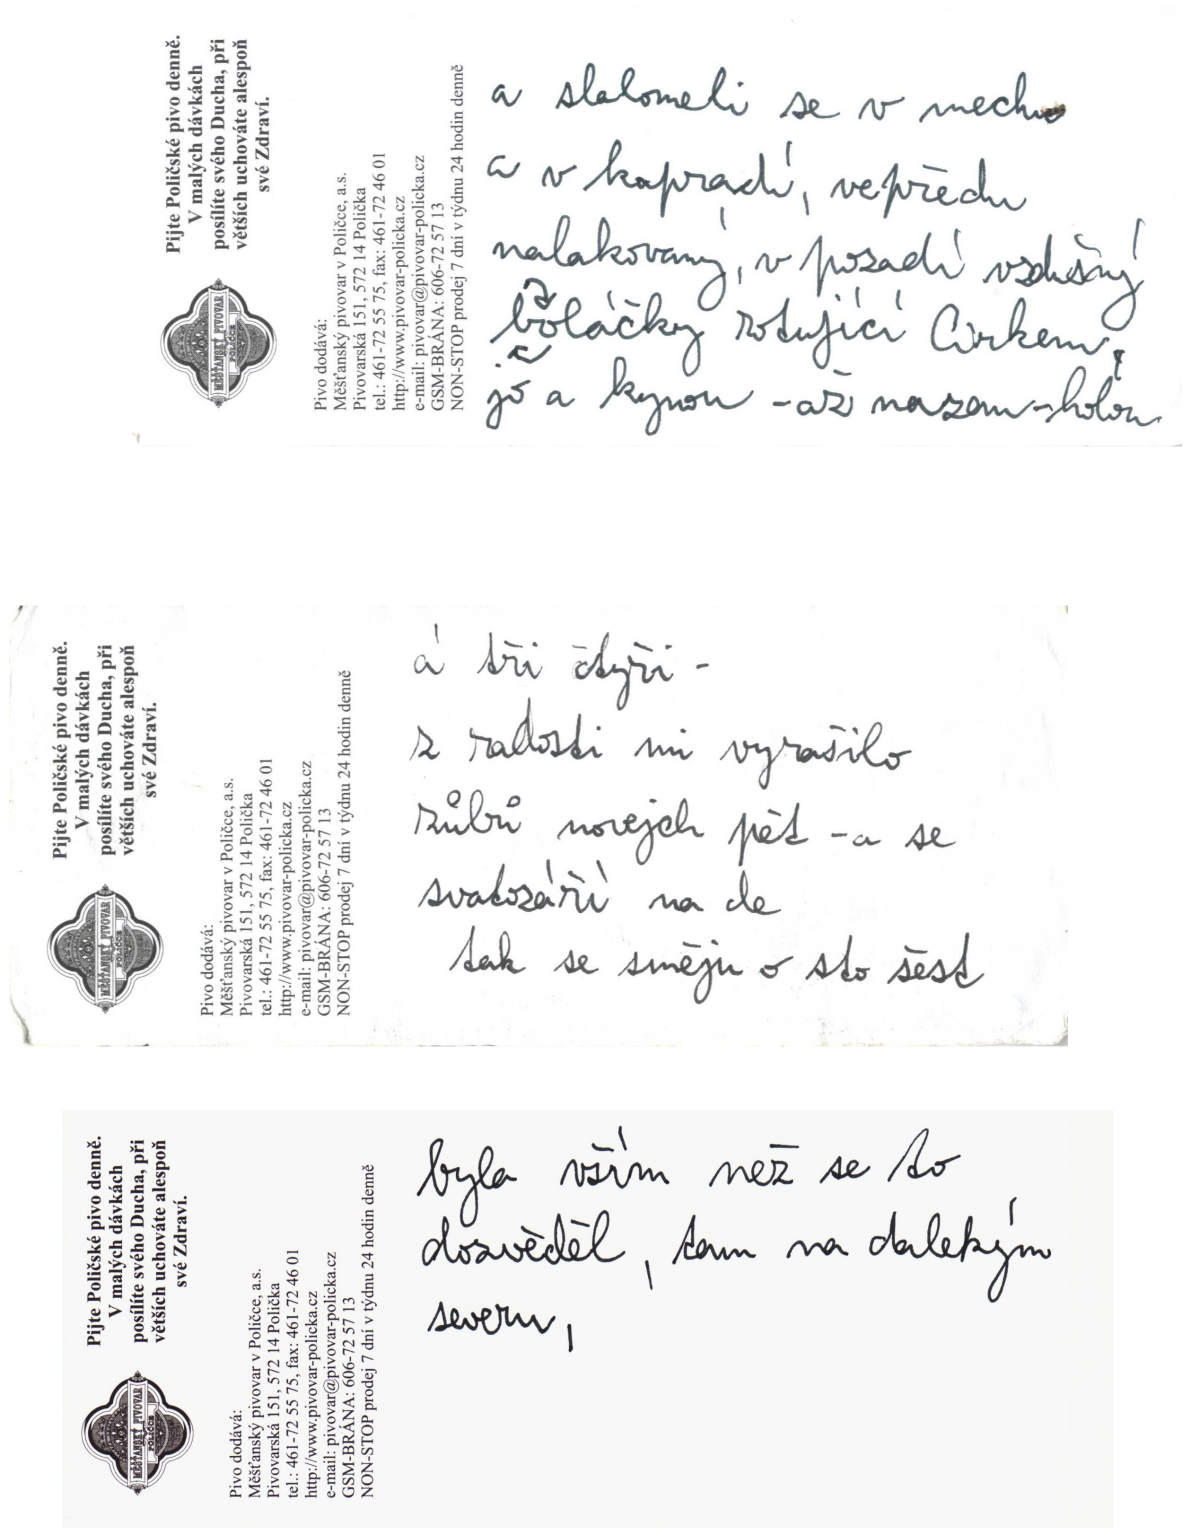 Pijte Poličské pivo denně.
V malých dávkách
posílíte svého Ducha, při
větších uchováte alespoň
své Zdraví.
MĚŠŤANSKÝ PIVOVAR
POLIČCE
Pivo dodává:
Měšťanský pivovar v Poličce, a.s.
Pivovarská 151, 572 14 Polička
tel.: 461-72 55 75, fax: 461-72 46 01
http://www.pivovar-policka.cz
e-mail: pivovar@pivovar-policka.cz
GSM-BRÁNA: 606-72 57 13
NON-STOP prodej 7 dní v týdnu 24 hodin denně
a slalomeli se v mechu
a v kapradí, vepředu
nalakovaný, v pozadí vzdušný
boláčky rotující Cirkem,
jó a kynou - až nazem-holou
Pijte Poličské pivo denně.
V malých dávkách
posílíte svého Ducha, při
větších uchováte alespoň
své Zdraví.
MĚŠŤANSKÝ PIVOVAR
POLIČCE
Pivo dodává:
Měšťanský pivovar v Poličce, a.s.
Pivovarská 151, 572 14 Polička
tel.: 461-72 55 75, fax: 461-72 46 01
http://www.pivovar-policka.cz
e-mail: pivovar@pivovar-policka.cz
GSM-BRÁNA: 606-72 57 13
NON-STOP prodej 7 dní v týdnu 24 hodin denně
á tři čtyři -
z radosti mi vyrašilo
zůbrů novejch pět - a se
svatozáří na de
tak se směju o sto šest
Pijte Poličské pivo denně.
V malých dávkách
posílíte svého Ducha, při
větších uchováte alespoň
své Zdraví.
MĚŠŤANSKÝ PIVOVAR
POLIČCE
Pivo dodává:
Měšťanský pivovar v Poličce, a.s.
Pivovarská 151, 572 14 Polička
tel.: 461-72 55 75, fax: 461-72 46 01
http://www.pivovar-policka.cz
e-mail: pivovar@pivovar-policka.cz
GSM-BRÁNA: 606-72 57 13
NON-STOP prodej 7 dní v týdnu 24 hodin denně
byla vším než se to
dozvěděl, tam na dalekým
severu,